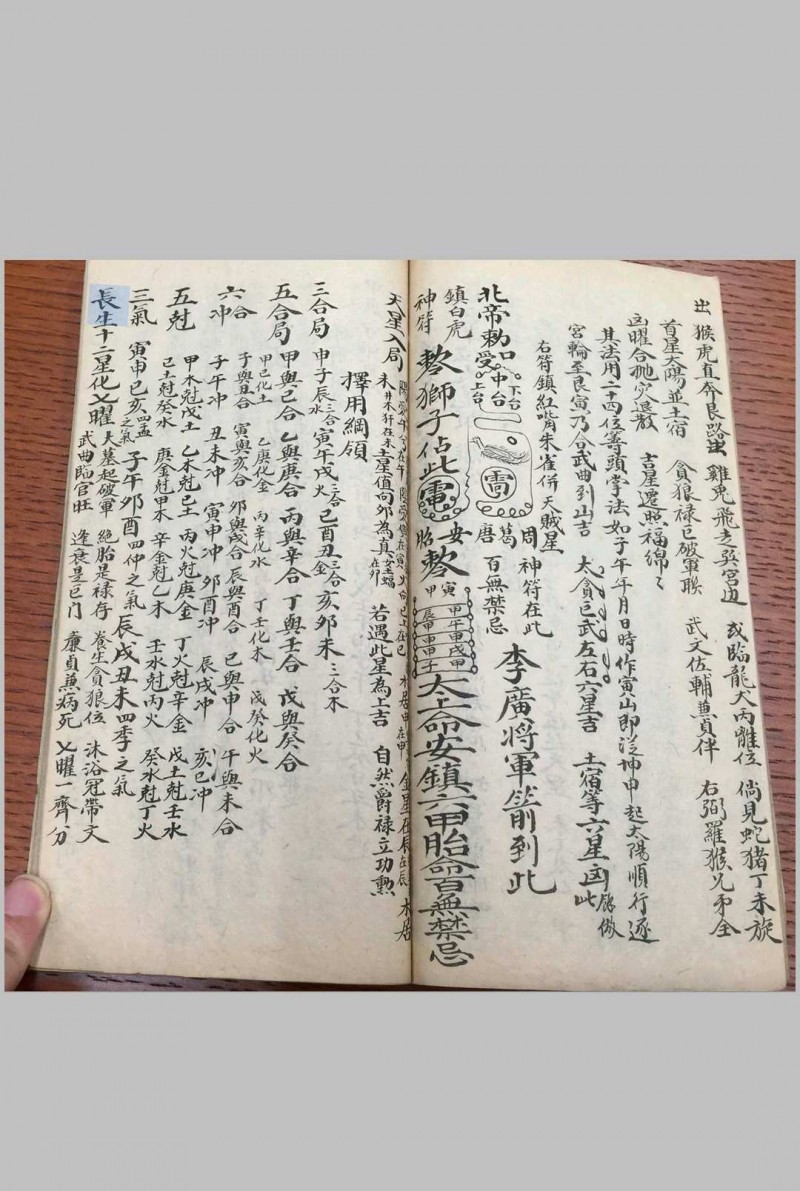 出 猴虎直奔艮路出 雞兔飛走巽宮边 或臨龍犬丙離位 倘見蛇猪丁未旋
首星太陽並土宿 貪狼禄巨破軍聯 武文佐輔蕪貞伴 右弼羅猴兄弟全
凶曜合祂灾退散 吉星遷照福綿〻
其法用二十四位等頭掌法如子午年月日時作寅山即從坤申起太陽順行逐
宮輪至艮寅乃合武曲到山吉 太貪巨武左右六星吉 土宿等六星凶此餘倣
右符鎮紅嘴朱雀併天賊星
北帝勅 受 上台 中台 下台
周 葛 唐
神符在此 百無禁忌
李廣將軍箭到此
鎮白虎
神符
獅子佔此
安胎
寅甲
甲午甲戌甲
辰甲申甲子
太上命安鎮六甲胎命百無禁忌
天星入局
未 井木犴在未 土星值向卯為真 若遇此星為上吉 自然爵禄立功勲
擇用綱領
三合局 申子辰三合水 寅午戌三合火 巳酉丑三合金 亥卯未三合木
五合局 甲與己合 乙與庚合 丙與辛合 丁與壬合 戊與癸合
甲己化土 乙庚化金 丙辛化水 丁壬化木 戊癸化火
六合 子與丑合 寅與亥合 卯與戌合 辰與酉合 巳與申合 午與未合
六冲 子午冲 丑未冲 寅申冲 卯酉冲 辰戌冲 亥巳冲
五尅 甲木尅戊土 乙木尅己土 丙火尅庚金 丁火尅辛金 戊土尅壬水
己土尅癸水 庚金尅甲木 辛金尅乙木 壬水尅丙火 癸水尅丁火
三氣 寅申巳亥四孟之氣 子午卯酉四仲之氣 辰戌丑未四季之氣
長生十二星化乂曜 天墓起破軍 絕胎是禄存 养生貪狼位 沐浴冠帶文
武曲臨官旺 逢衰是巨门 廉貞蕪病死 乂曜一齊分